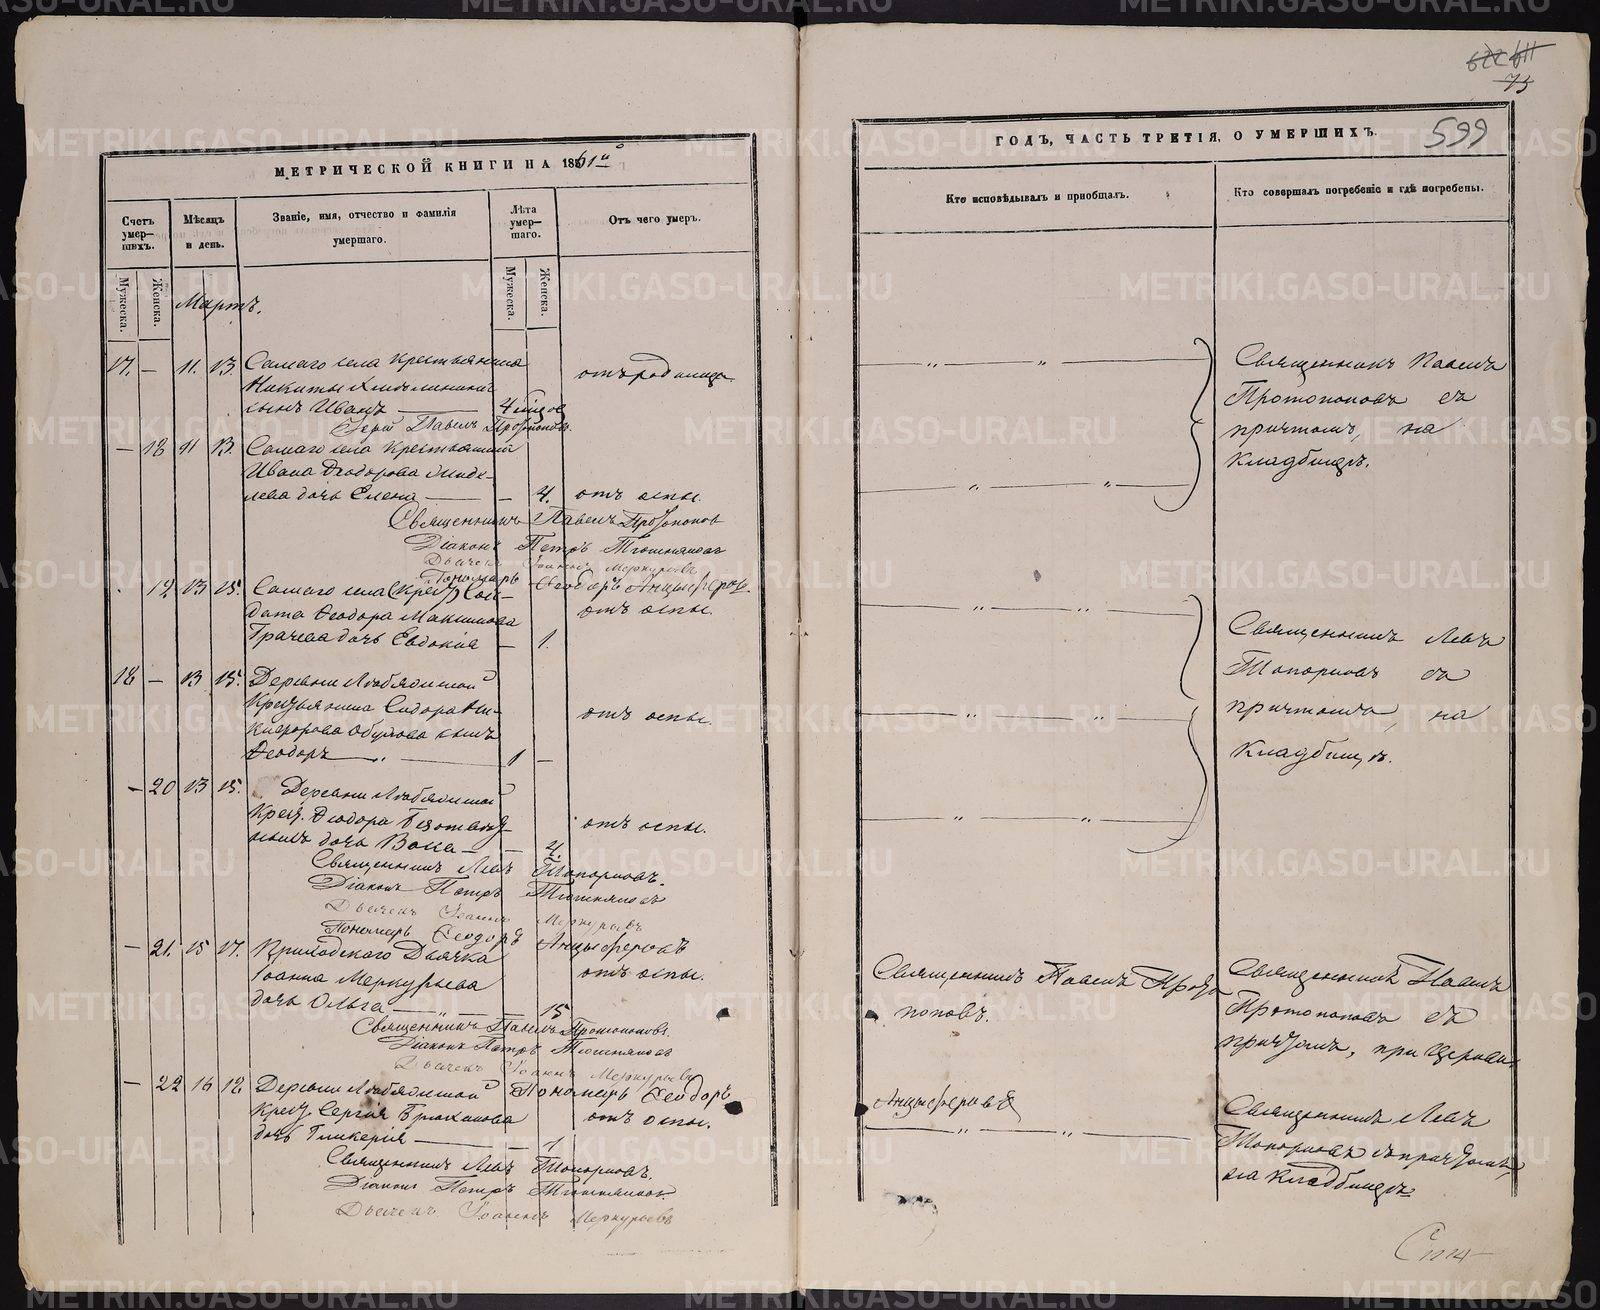 622 611
75
599
МЕТРИЧЕСКОЙ КНИГИ НА 1861й
Счетъ умер-
шихъ.
Мужеска.
Женска.
Мѣсяцъ
и день.
Званіе, имя, отчество и фамилія
умершаго.
Лѣта
умер-
шаго.
Мужеска.
Женска.
Отъ чего умеръ.
Мартъ.
17. — 11. 13. Самаго села Крестьянина
Никиты
сынъ Иванъ — 4 отъ родимца.
Іерей Павелъ Протопоповъ.
— 18 11 13. Самаго села Крестьянина
Ивана Ѳеодорова
дочь Елена — — 4. отъ оспы.
Священникъ Павелъ Протопопов
Діаконъ Петръ Тюшняковъ
Дьячекъ Іоаннъ Меркурьевъ
Пономарь Ѳеодоръ Анцыферовъ.
19 13 15. Самаго села (Крест) Сол-
дата Ѳеодора Максимова
Грачева дочь Евдокія — 1. отъ оспы.
18 — 13 15. Деревни
Крестьянина Сидора Ни-
кифорова сынъ
Ѳеодоръ — 1 — отъ оспы.
— 20 13 15. Деревни
Крест. Ѳеодора
дочь — — 4. отъ оспы.
Священникъ Левъ Топорковъ.
Діаконъ Петръ Тюшняковъ
Дьячекъ Іоаннъ Меркурьевъ
Пономарь Ѳеодоръ Анцыферовъ
— 21. 15 17. Приходского Дьячка
Іоанна Меркурьева
дочь Ольга — „ — 15 отъ оспы.
Священникъ Павелъ Протопоповъ.
Діаконъ Петръ Тюшняковъ
Дьячекъ Іоаннъ Меркурьевъ
Пономарь Ѳеодоръ
— 22 16 18. Деревни
Крест. Сергія
дочь Гликерія — 1 отъ оспы.
Священникъ Левъ Топорковъ.
Діаконъ Петръ Тюшняковъ
Дьячекъ Іоаннъ Меркурьевъ
ГОДЪ, ЧАСТЬ ТРЕТІЯ, О УМЕРШИХЪ.
Кто исповѣдывалъ и пріобщалъ.
Кто совершалъ погребеніе и гдѣ погребены.
— „ — „ —
Священникъ Павелъ
Протопоповъ съ
причтомъ, на
Кладбищѣ.
— „ — „ —
— „ — „ —
Священникъ Левъ
Топорковъ съ
причтомъ, на
Кладбищѣ.
— „ — „ —
— „ — „ —
Священникъ Павелъ Прото
поповъ.
Священникъ Павелъ
Протопоповъ съ
причтомъ, при Церкви.
Анцыферовъ
— „ — „ —
Священникъ Левъ
Топорковъ съ причтомъ,
на Кладбищѣ.